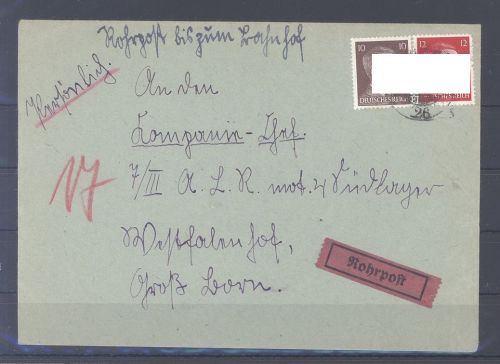 Rohrpost bis zum Bahnhof
Persönlich.
An den
Kompanie-Chef.
7/III A. L. R. mot. 4 Südlager
Westfalenhof,
Groß Born.
17
Rohrpost
10 10
DEUTSCHES REICH
12 12
26